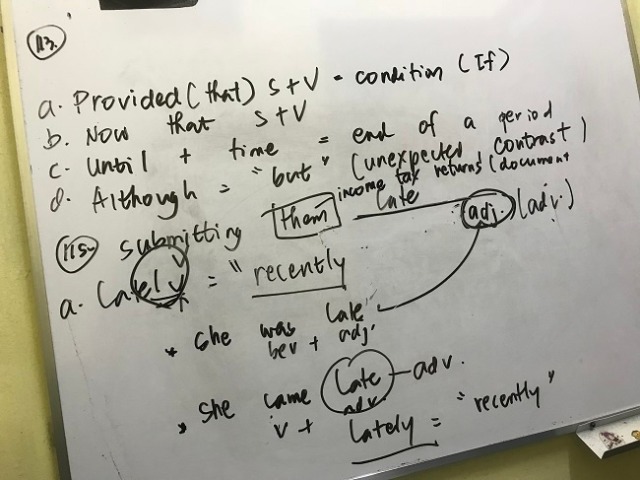 113.
a. Provided (that) S+V = condition (If)
b. Now that S+V
c. Until + time = end of a period
d. Although = "but" (unexpected contrast)
income tax returns (document
115. submitting them late adj. (adv.)
a. Lately = "recently
* She was late
bev + adj.
* She came late - adv.
v + adv.
lately = "recently"